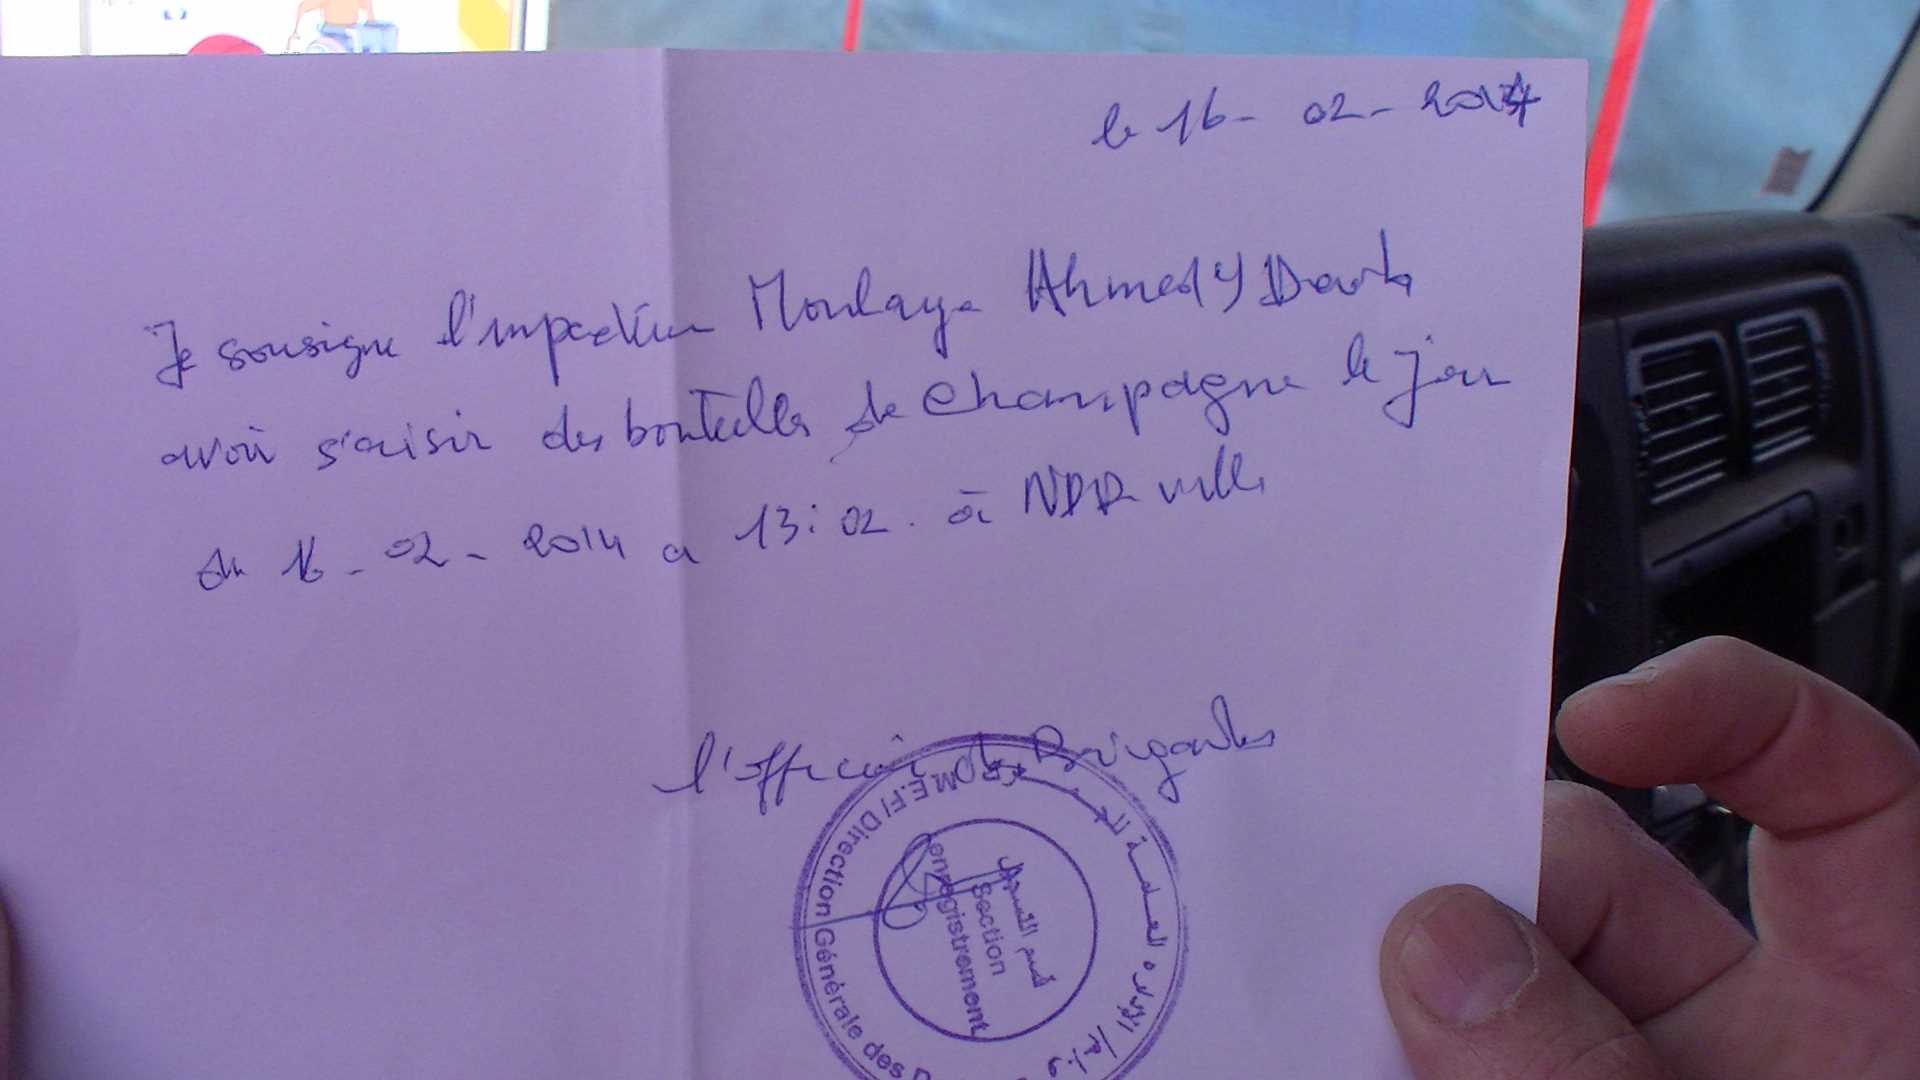 le 16-02-2014
Je sousigne l'inspecteur Moulaye Ahmed
avoir s'aisir des bouteilles de champagne le jour
du 16-02-2014 a 13:02. à NDB ville
l'officier de Brigades
R.I.M/M.E.F/ Direction Générale des D
الإدارة العامة للجمارك
قسم التسجيل
Section
enregistrement